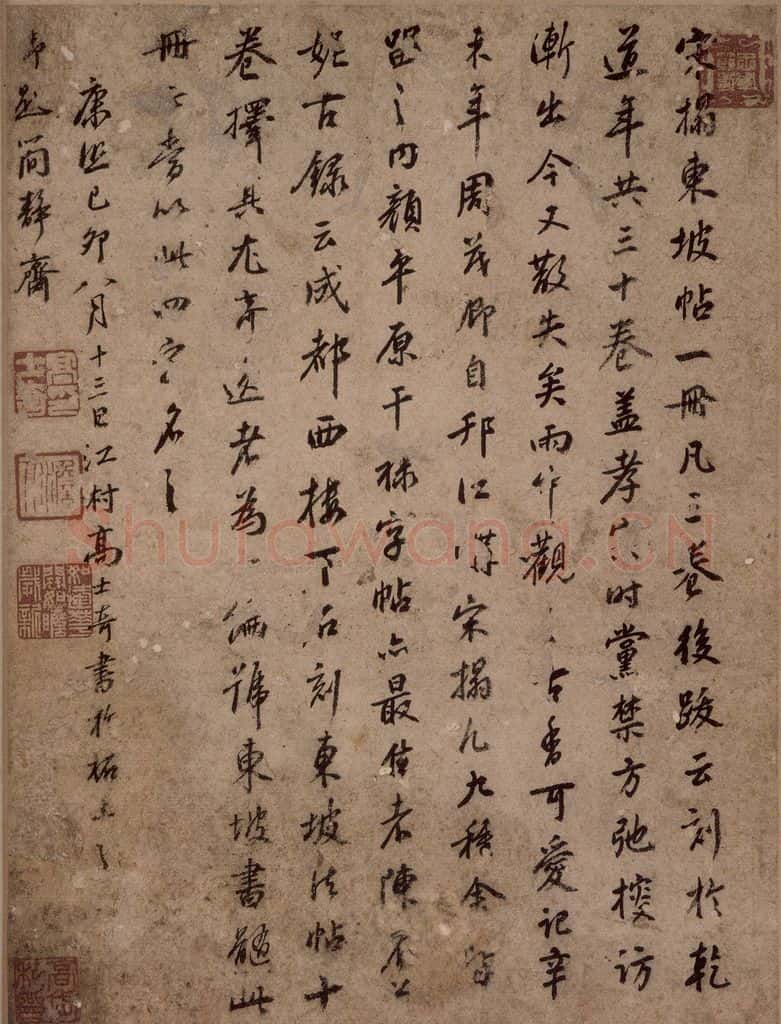 宋搨東坡帖一冊凡三卷後跋云刻於乾
道年共三十卷盖孝宗時黨禁方弛搜訪
漸出今又散失矣雨中觀之古香可愛記辛
未年周茂卿自邗江攜宋搨凡九種余皆
留之內顏平原干祿字帖亦最佳者陳眉公
妮古錄云成都西樓下石刻東坡法帖十
卷擇其尤奇逸者為一編號東坡書髓此
冊之當以此四字名之
康熙己卯八月十三日江村高士奇書於柘上之
簡靜齋
Shufawang.CN